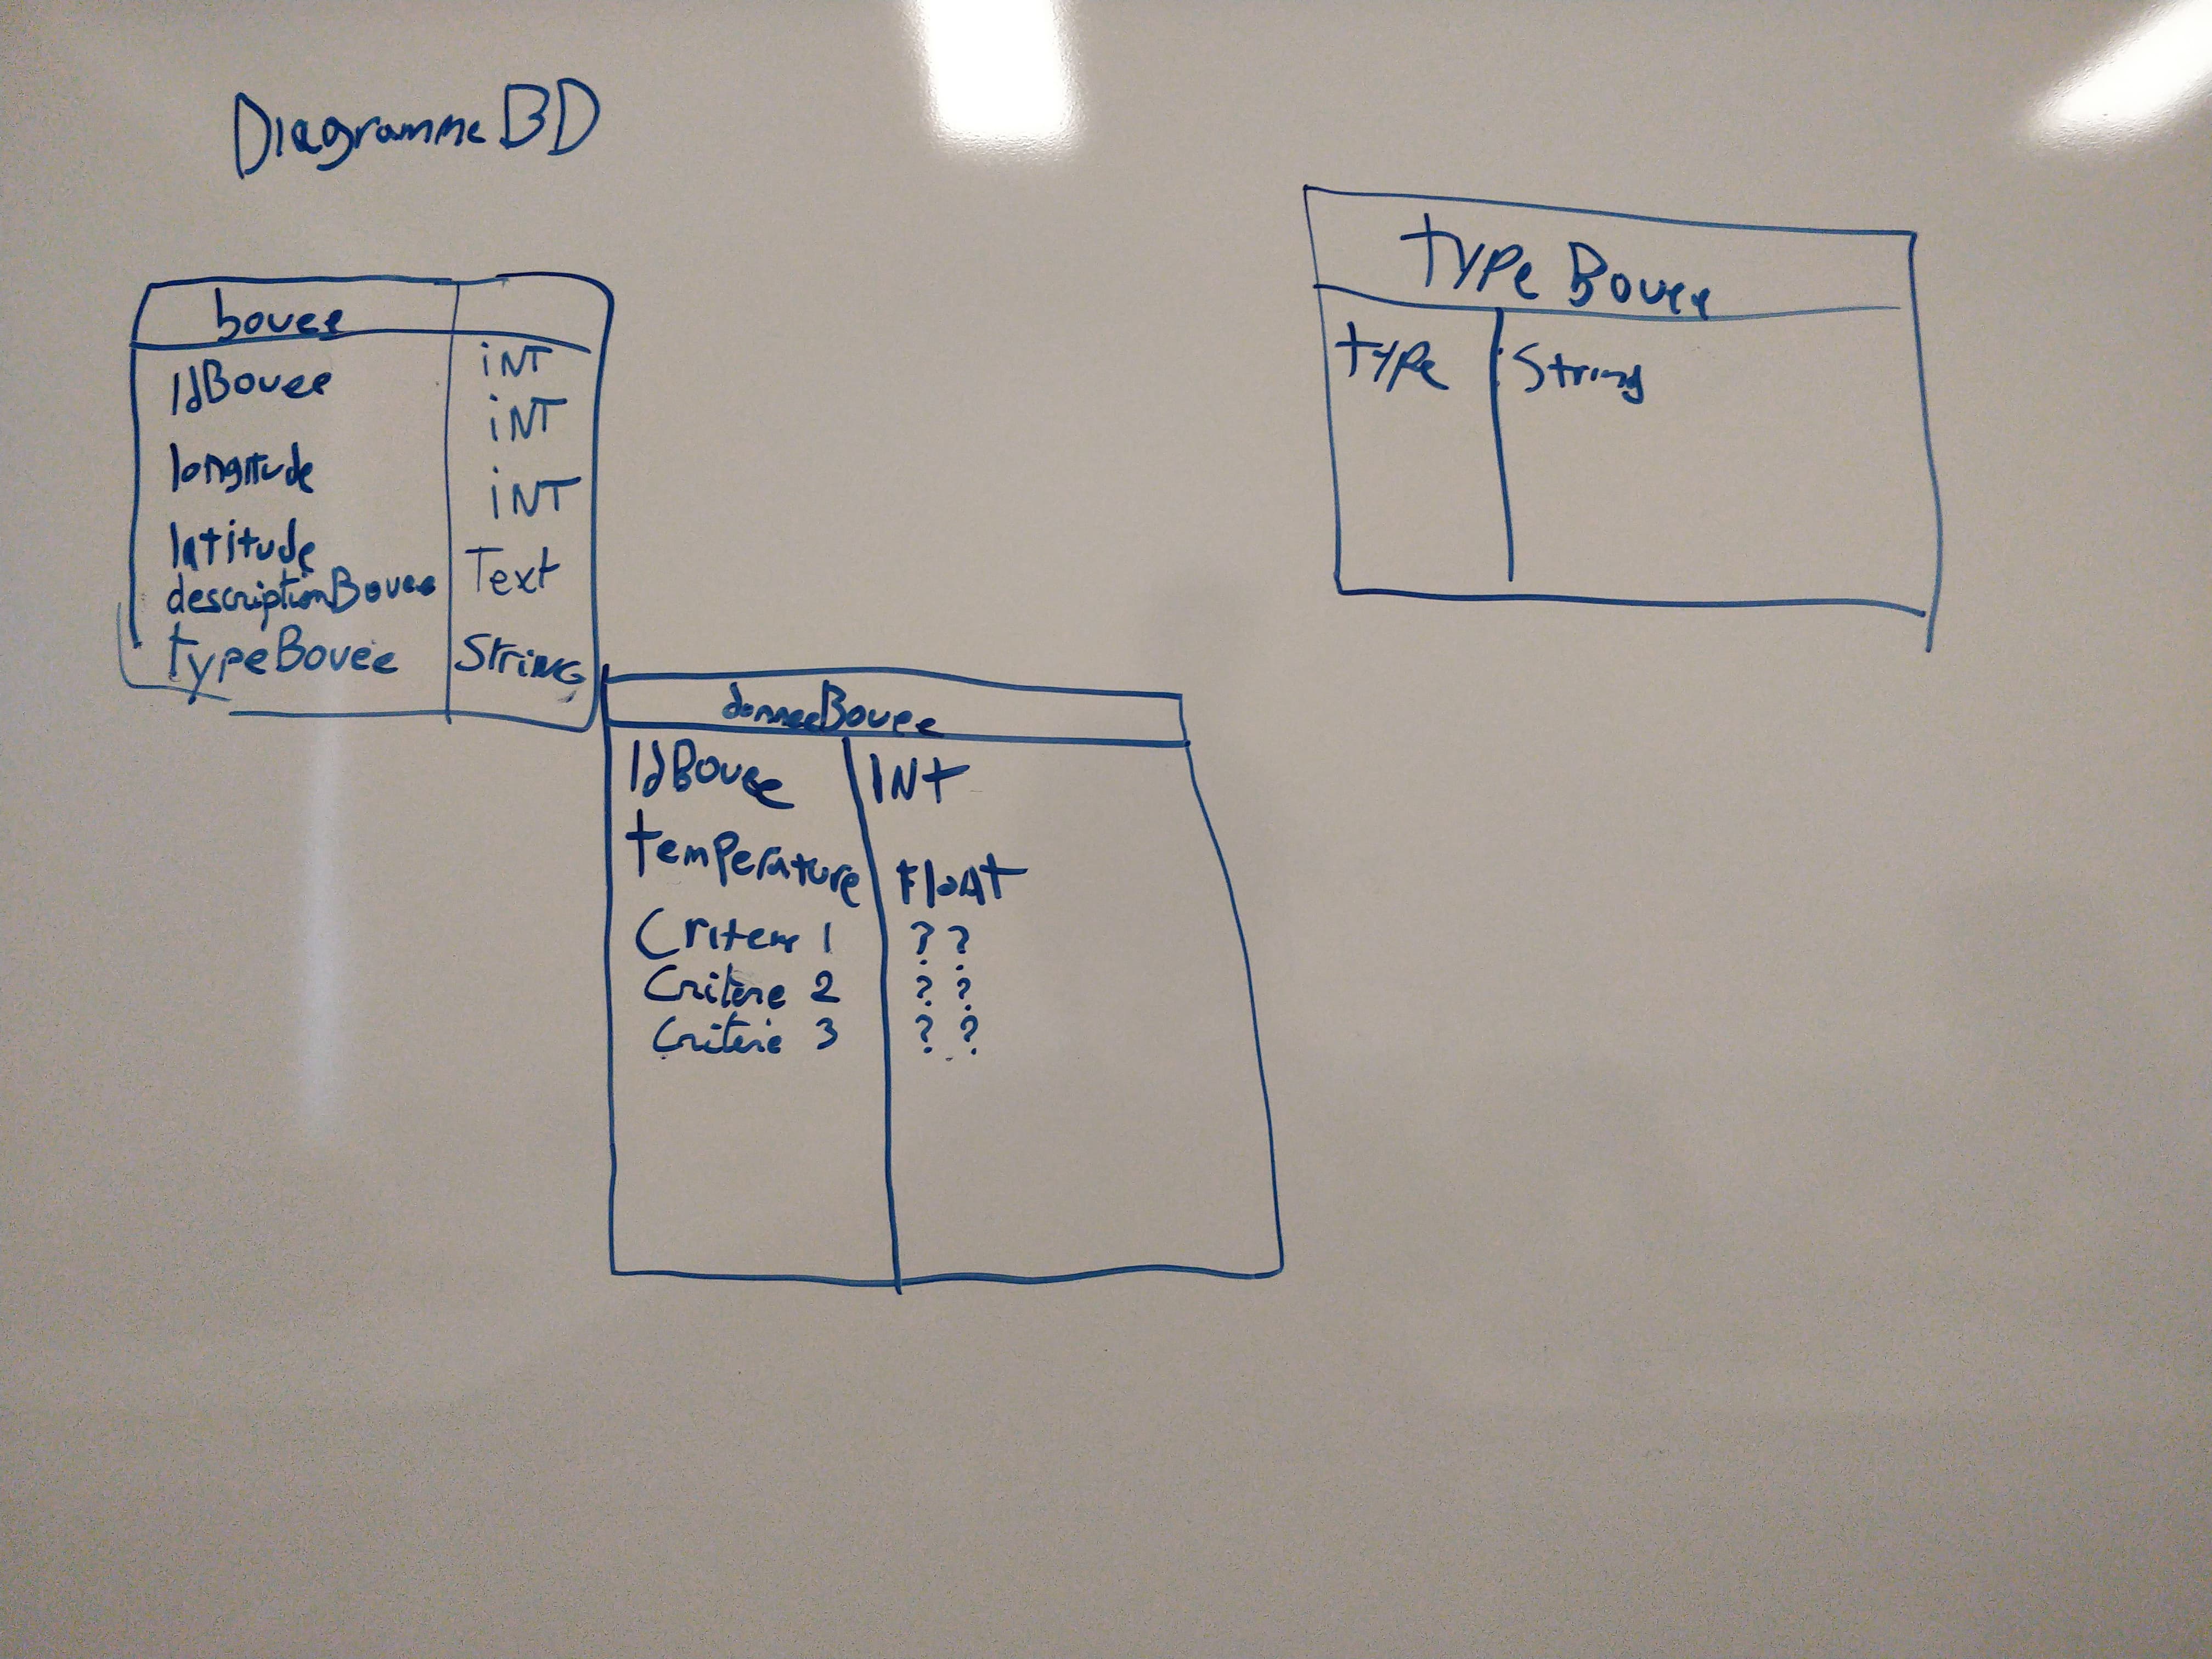 Diagramme BD
bouee
IdBouee INT
longitude INT
latitude INT
descriptionBouee Text
typeBouee STRING
type Bouee
type String
donneeBouee
IdBouee INT
temperature Float
Critere 1 ??
Critère 2 ??
Critère 3 ??